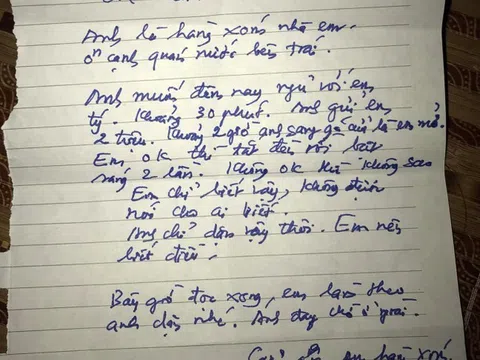 Anh là hàng xóm nhà em.
ở cạnh quán nước bên trái.
Anh muốn đêm nay ngủ với em
tý. Khoảng 30 phút. Anh gửi em
2 triệu. Khoảng 2 giờ anh sang gõ cửa là em mở.
Em OK thì tắt đèn rồi bật
sáng 2 lần. Không OK thì không sao
Em chỉ biết vậy, không được
nói cho ai biết.
Anh chỉ dặn vậy thôi. Em nên
biết điều.
Bây giờ đọc xong, em làm theo
anh dặn nhé. Anh đây chờ ở
hàng xóm